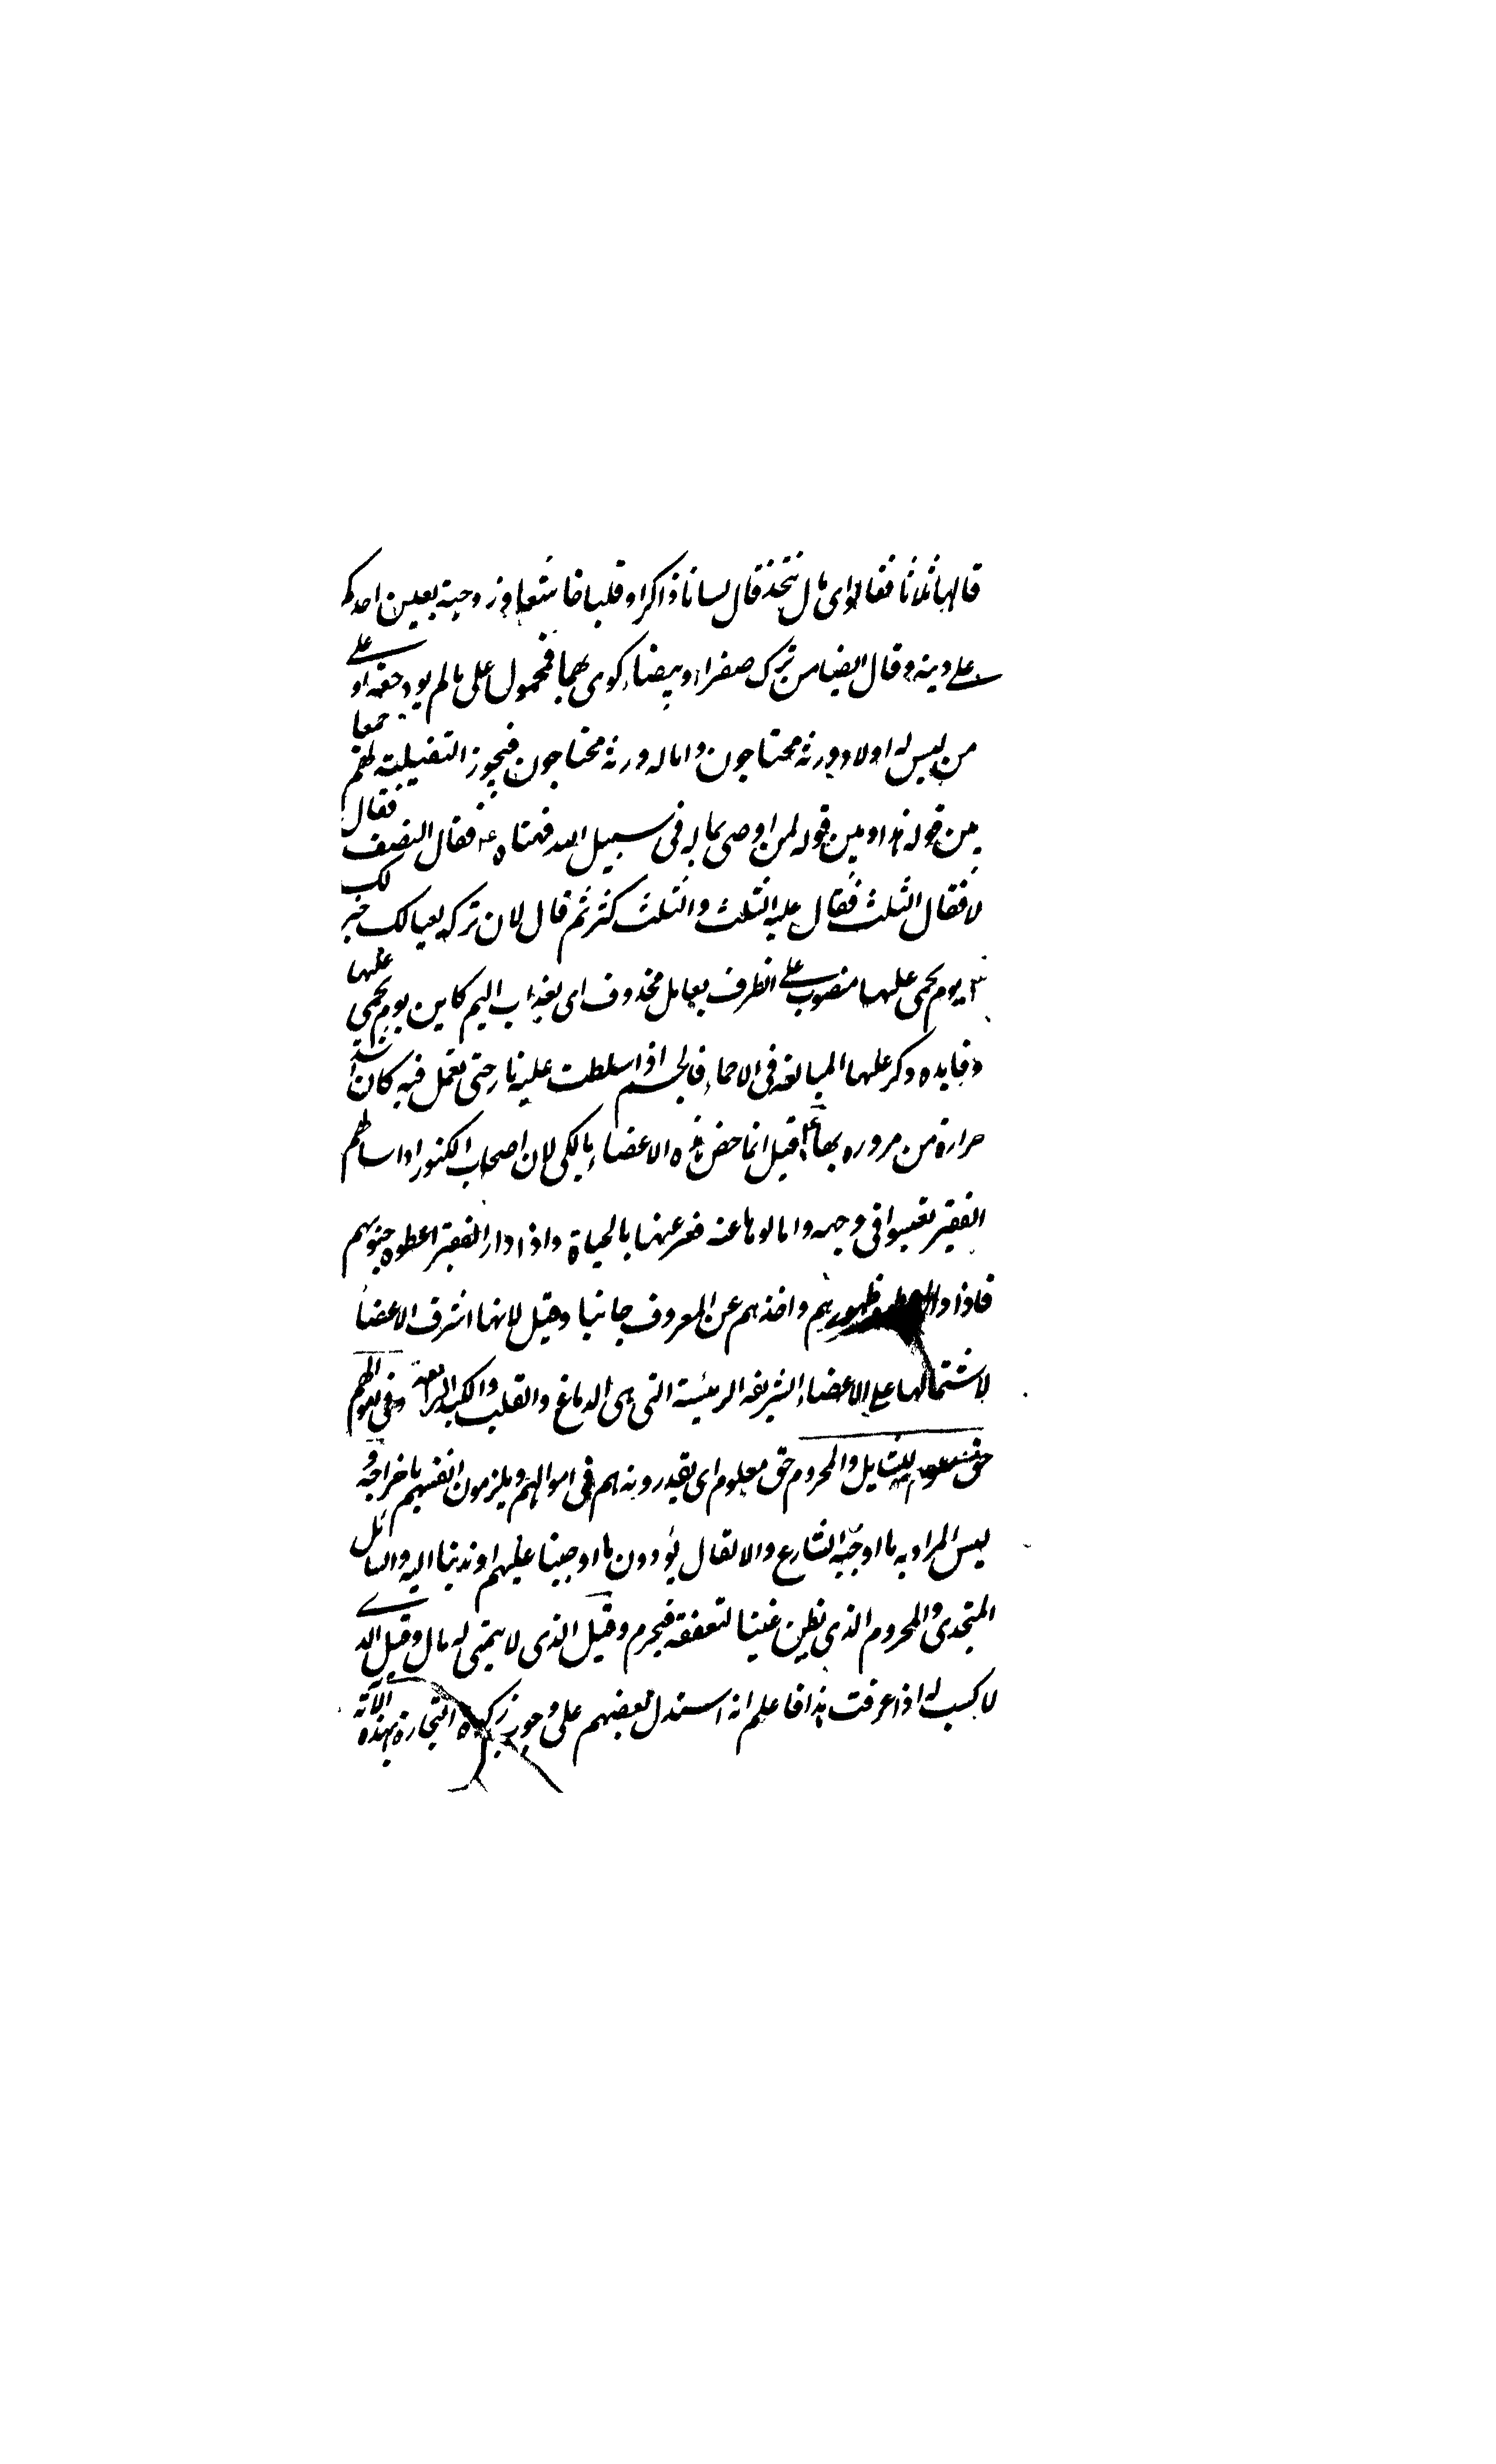 قالها ثلاثا فقالوا اى مال نتخذ قال لسانا ذاكرا وقلبا خاشعا وزوجة تعين احدكم
على دينه وقال ايضا من ترك صفراء وبيضاء كوى بهما فمحمول على مالم يود حقه او على
من ليس له اولاد وورثة محتاجون واما له ورثة محتاجون فيجوز التخليته لهم جمعا
بين قوله هذا وبين قوله لمن اوصى بماله فى سبيل الله فنهاه عنه فقال النصف فقال
لا فقال الثلث فقال عليه الثلث والثلث كثير ثم قال لان تركه لعيالك خير لك
يوم يحمى عليها منصوب على الظرف بعامل محذوف اى بعذاب اليم كاين يوم يحمى عليها
وفايده ذكر عليها المبالغه فى الاحماء فالجسم اذا سلطت عليه نار حتى تعمل فيه كان اشد
حرارة من مروره بها قيل انما خص هذه الاعضاء بالكى لان اصحاب الكنوز اذا سالهم
الفقير تعبسوا فى وجهه وامالوها عنه فعبر عنها بالحياة واذا دار الفقير اعطوه جنوبهم
فاذا دار اعطوه ظهورهم واخذهم عن المعروف جانبا وقيل لانها اشرف الاعضا
لاشتمالها على الاعضاء الشريفه الرئيسة التى هى الدماغ والقلب والكبد الرابعه وفى اموالهم
حق معلوم للسايل والمحروم حق معلوم اى يقدرونه هم فى اموالهم ويلزمون انفسهم باخراجه و
ليس المراد به ما اوجبه الشارع والا لقال يؤدون ما اوجبنا عليهم او ندبنا اليه والسائل
المتجدى والمحروم الذى يظن غنيا لتعففه فيحرم وقيل الذى لا يتمى له مال وقيل الذى
لا كسب له اذا عرفت هذا فاعلم انه استدل بعضهم على وجوب زكوة التجارة بهذه الآية